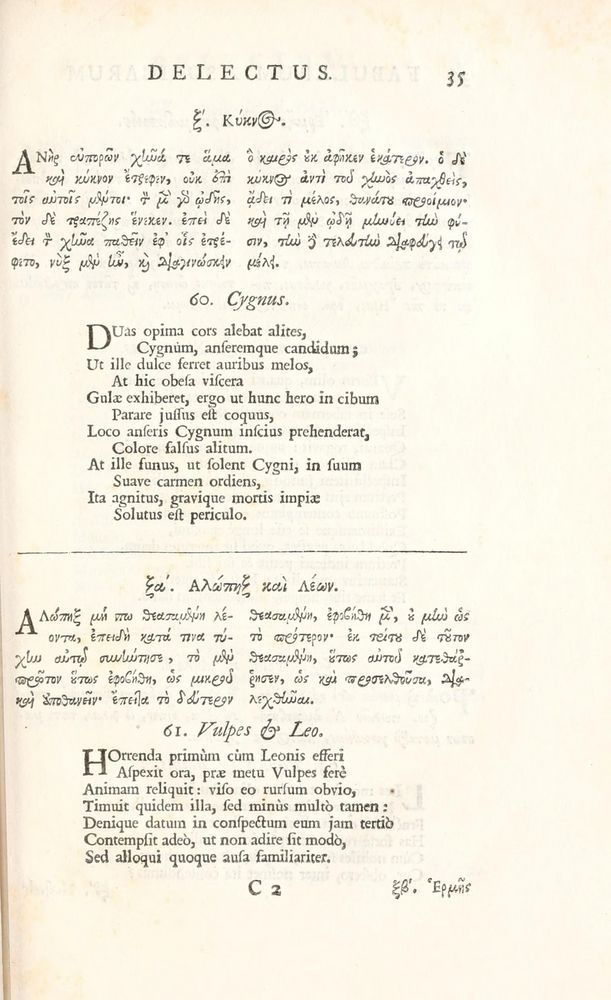 DELECTUS. 35
ξ. Κύκνος.
ΑΝὴρ εὐπορῶν χῆνά τε ἅμα
καὶ κύκνον ἔτρεφεν, οὐκ ἐπὶ
τοῖς αὐτοῖς μέντοι· τὸν μὲν γὰρ ᾠδῆς,
τὸν δὲ τραπέζης ἕνεκεν. ἐπεὶ δὲ
ἔδει τὸν χῆνα παθεῖν ἐφ' οἷς ἐτρέ-
φετο, νὺξ μὲν ἦν, καὶ διαγινώσκειν
ὁ καιρὸς οὐκ ἀφῆκεν ἑκάτερον. ὁ δὲ
κύκνος ἀντὶ τοῦ χηνὸς ἀπαχθεὶς,
ᾄδει τὶ μέλος, θανάτου προοίμιον·
καὶ τῇ μὲν ᾠδῇ μηνύει τὴν φύ-
σιν, τὴν δὲ τελευτὴν διαφεύγει τῷ
μέλει.
60. Cygnus.
DUas opima cors alebat alites,
Cygnúm, anseremque candidum;
Ut ille dulce ferret auribus melos,
At hic obesa viscera
Gulæ exhiberet, ergo ut hunc hero in cibum
Parare jussus est coquus,
Loco anseris Cygnum inscius prehenderat,
Colore falsus alitum.
At ille funus, ut solent Cygni, in suum
Suave carmen ordiens,
Ita agnitus, gravique mortis impiæ
Solutus est periculo.
ξα'. Αλώπηξ καὶ Λέων.
ΑΛώπηξ μή πω θεασαμένη λέ-
οντα, ἐπειδὴ κατά τινα τύ-
χην αὐτῷ συνήντησε, τὸ μὲν
πρῶτον οὕτως ἐφοβήθη, ὡς μικροῦ
καὶ ἀποθανεῖν· ἔπειτα τὸ δεύτερον
θεασαμένη, ἐφοβήθη μὲν, οὐ μὴν ὡς
τὸ πρότερον· ἐκ τρίτου δὲ τοῦτον
θεασαμένη, οὕτως αὐτοῦ κατεθάῤ-
ρησεν, ὡς καὶ προσελθοῦσα, δια-
λεχθῆναι.
61. Vulpes & Leo.
HOrrenda primùm cùm Leonis efferi
Aspexit ora, præ metu Vulpes ferè
Animam reliquit: viso eo rursum obvio,
Timuit quidem illa, sed minùs multò tamen:
Denique datum in conspectum eum jam tertiò
Contempsit adeò, ut non adire sit modò,
Sed alloqui quoque ausa familiariter.
C 2 ξβ'. Ἑρμῆς